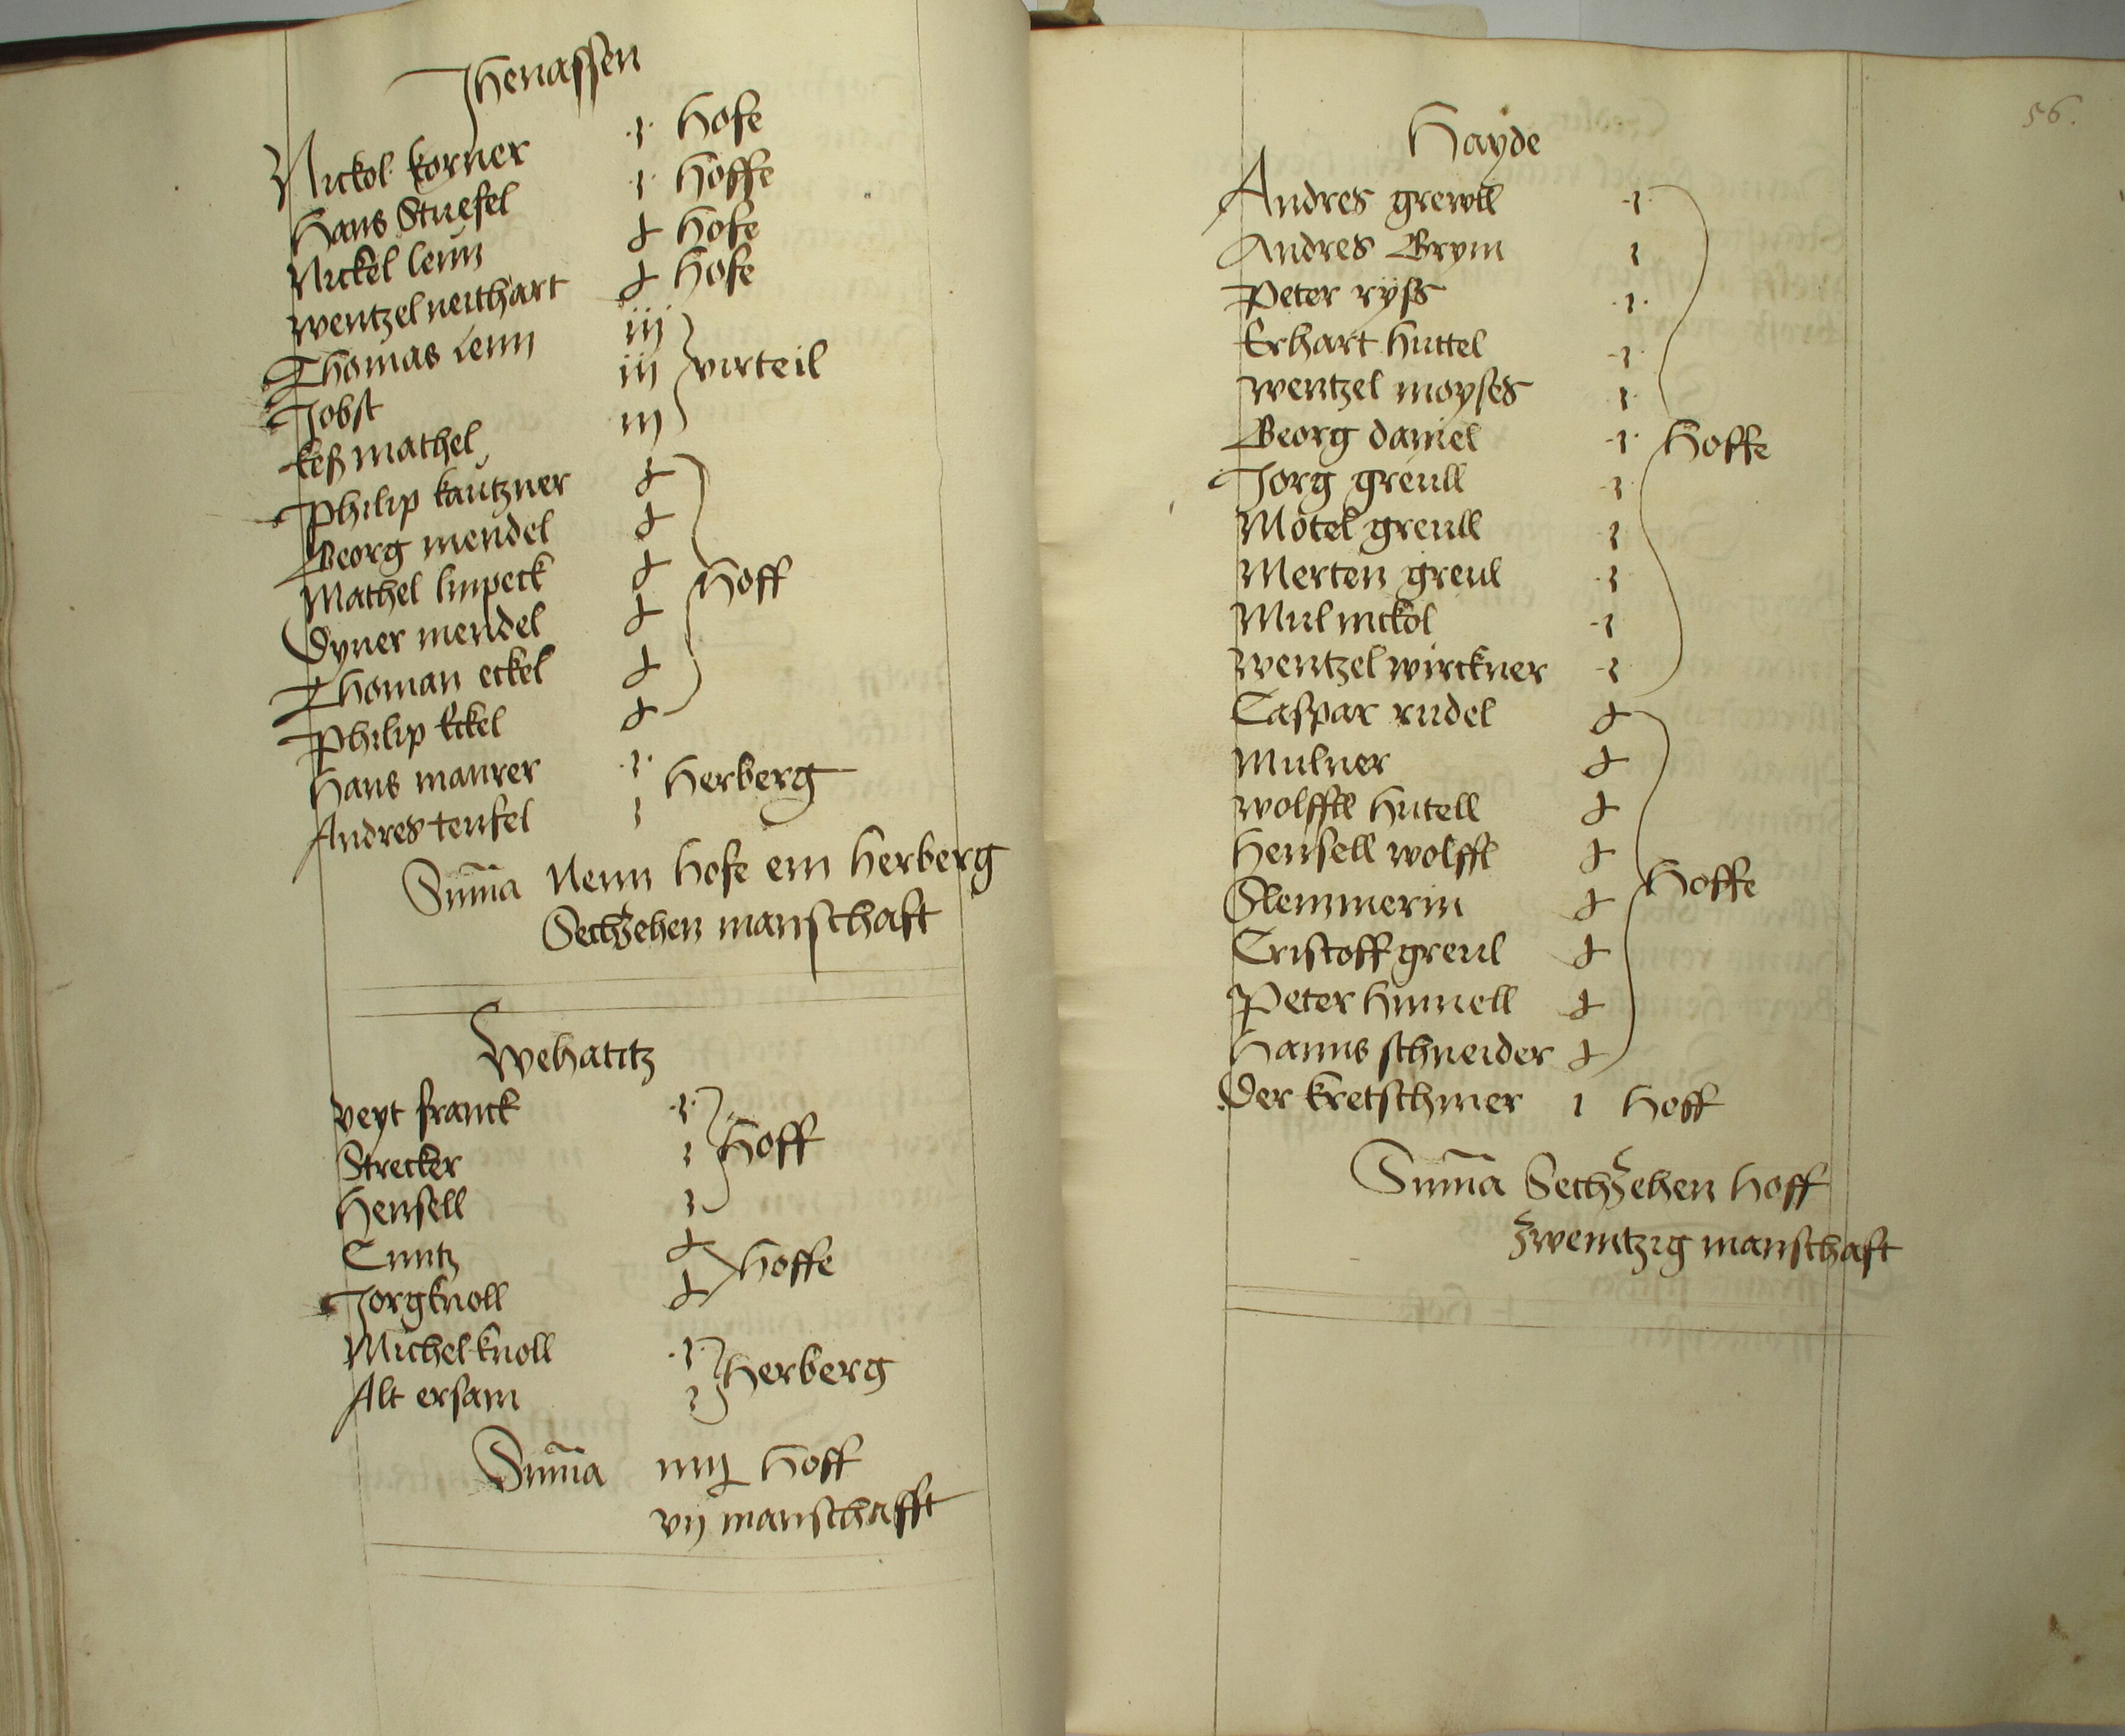 Jhenassen
Nickol korner .1. Hofe
Hans Stuefel .1. Hoffe
Nickel lenn ɟ Hofe
wentzel neithart ɟ Hofe
Thomas Lenn iij
Jobst iij virteil
keß mathel iij
Philip kautzner ɟ
Georg mendel ɟ
Mathel linpeck ɟ Hoff
Dyner mendel ɟ
Thoman eckel ɟ
Philip Eckel ɟ
Hans maurer .1. Herberg
Andres teufel 1
Suma Neun Hofe ein Herberg
Sechzehen manschaft
Wehatitz
Veyt franck .1.
Strecker 1 Hoff
Hensell 1
Cuntz ɟ Hoffe
Jorg knoll ɟ
Michel knoll .1. Herberg
Alt ersam 1
Suma iiiɟ Hoff
vij manschafft
56.
Hayde
Andres grewll .1.
Andres Brym 1
Peter ryss .1.
Erhart Huttel .1.
wentzel moyses 1
Georg daniel .1. Hoffe
Jorg greull .1
Motel greull 1
Merten greul .1
Mul nickol .1
wentzel wirckner .1
Caspar rudel ɟ
Mulner ɟ
wolffll Hutell ɟ
Hensell wolffl ɟ
Slemmerin ɟ Hoffe
Cristoff greul ɟ
Peter Hunell ɟ
Hanns schneider ɟ
Der kretschmer 1 Hoff
Suma Sechzehen Hoff
zweintzig manschaft